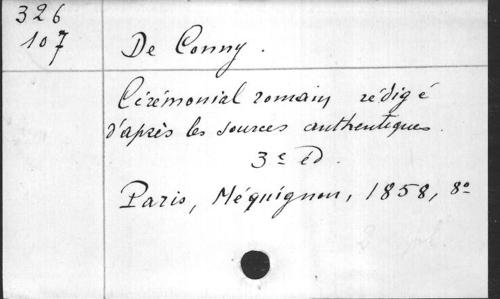 326
107
De Conny.
Cérémonial romain rédigé
d'après les sources authentiques.
3e éd.
Paris, Méquignon, 1858, 8o